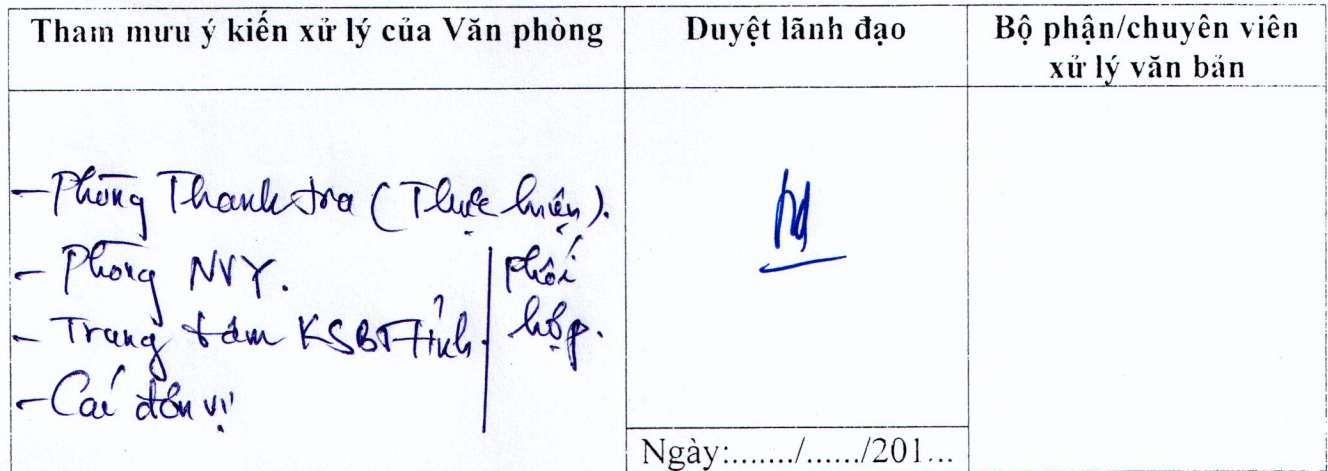 Tham mưu ý kiến xử lý của Văn phòng
Duyệt lãnh đạo
Bộ phận/chuyên viên
xử lý văn bản
- Phòng Thanh tra (Thực hiện).
- Phòng NVY.
- Trung tâm KSBT tỉnh.
- Các đơn vị
phối
hợp.
Ngày:......./....../201...